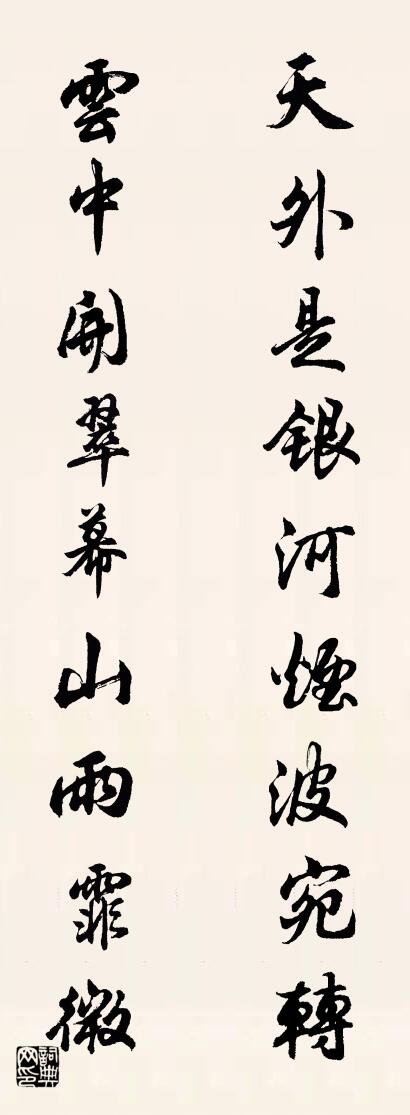 天外是銀河煙波宛轉
雲中開翠幕山雨霏微
詞典網印